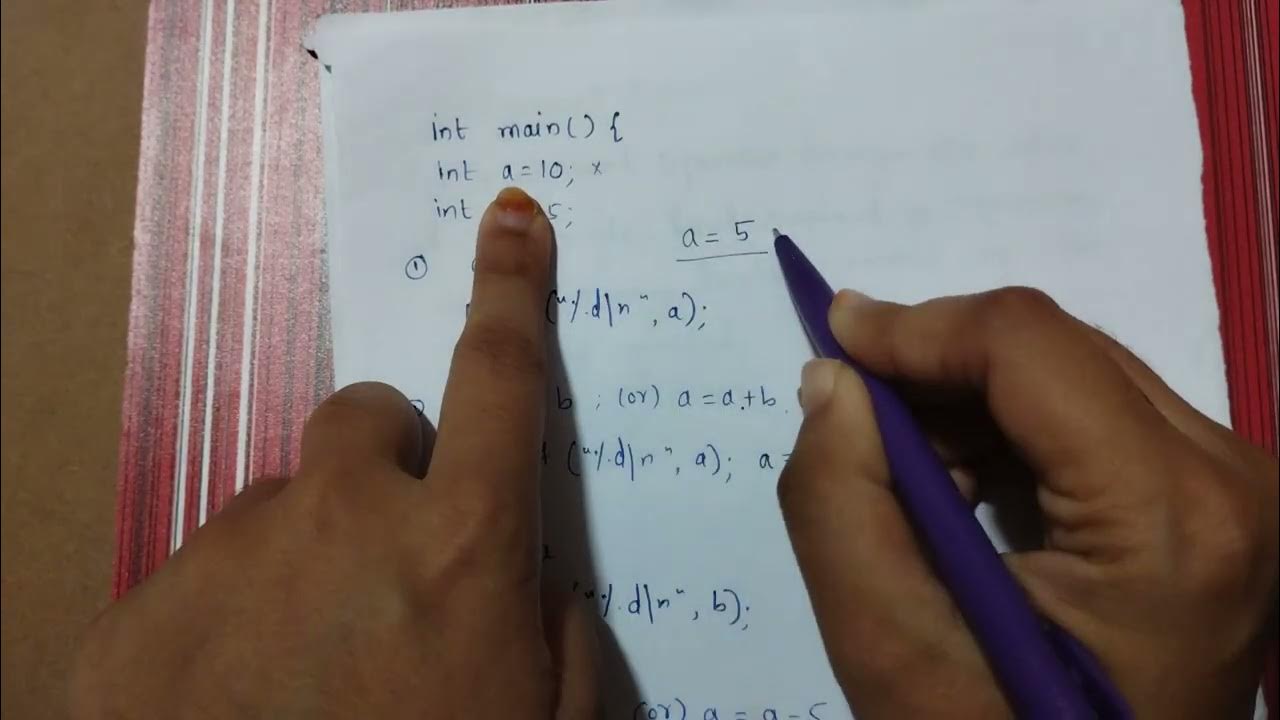 int main() {
int a=10; x
int 5;
a = 5
①
("%d\n", a);
b ; (or) a = a+b
("%d\n", a); a =
"%d\n", b);
(or) a = a-5